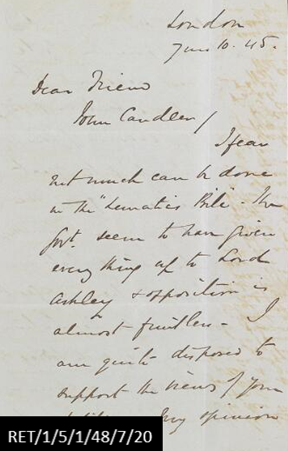 London
June 10. 45.
Dear Friend
John Candler /
I fear
not much can be done
in the "Lunatics Bill" - the
Govt. seem to have given
every thing up to Lord
Ashley & opposition is
almost fruitless - I
am quite disposed to
support the views of your
my opinion
RET/1/5/1/48/7/20